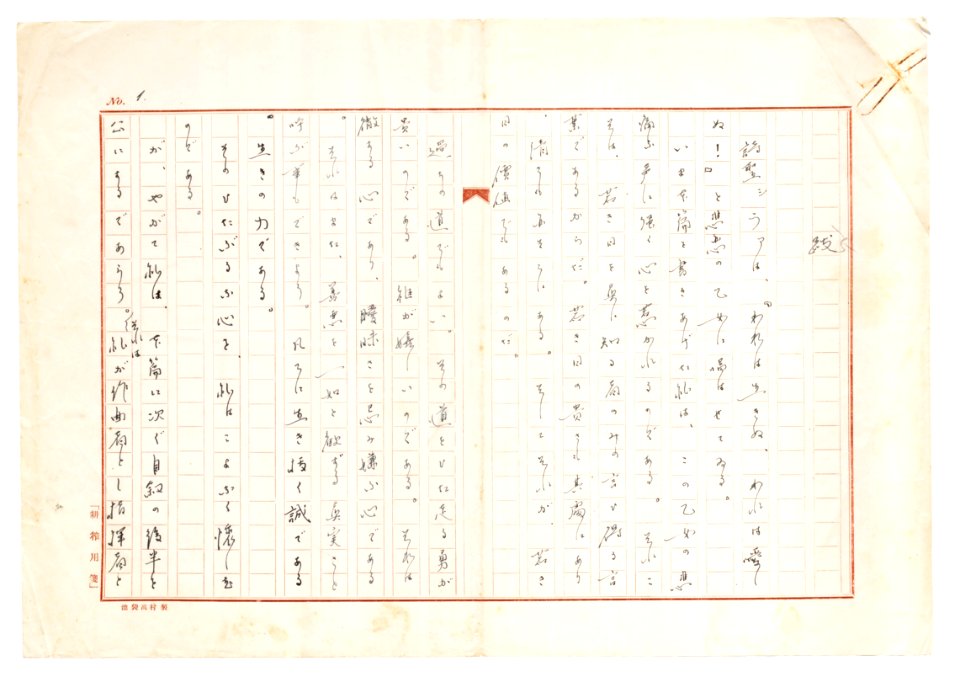 No. 1.
跋
詩聖シラアは、『われは生きぬ、われは愛し
ぬ!』と悲恋の乙女に唱はせてゐる。
いま本篇を書きあげた私は、この乙女の悲
痛な声に強く心を惹かれるのである。それこ
そは、若き日を真に知る者のみの言ひ得る言
葉であるからだ。若き日の貴さも其処にあり
、清さもまたそこにある。そしてそれが、若き
日の価値でもあるのだ。
過ちの道でもよい。その道をひた走る勇が
貴いのである。稚が嬉しいのである。それは
燃ゆる心であり、曖昧さを忌み嫌ふ心である
。それはまた、善悪を一如と観ずる真実ごと
呼ぶ事もできよう。凡てに生き抜く誠である
。生きの力である。
そのひたぶるな心を、私はこよなく懐しむ
のである。
が、やがて私は、本篇に次ぐ自叙の後半を
公にするであらう。それは私が作曲者とし指揮者と
「新稿用箋」
池袋高村製